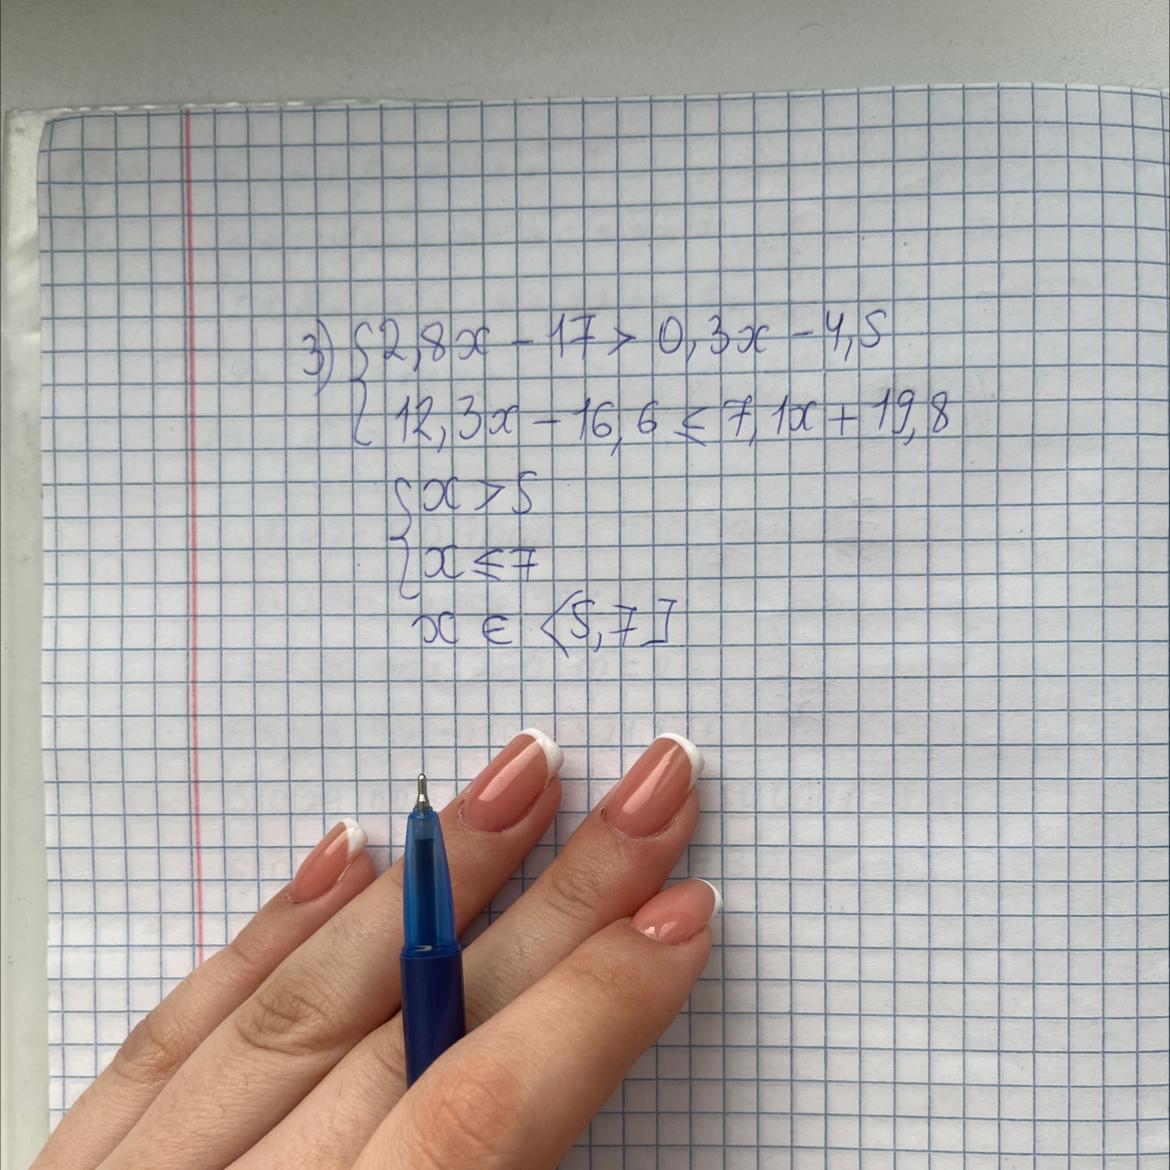 3) { 2,8x - 17 > 0,3x - 4,5
12,3x - 16,6 ≤ 7,1x + 19,8
{ x > 5
x ≤ 7
x ∈ <5,7]